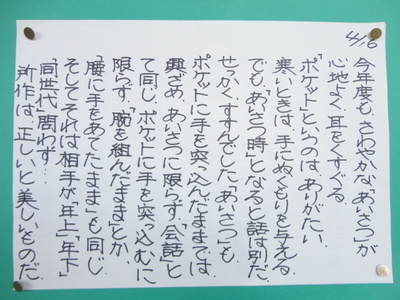 4/16
今年度も、さわやかな「あいさつ」が
心地よく、耳をくすぐる。
「ポケット」というのは、ありがたい。
寒いときは、手にぬくもりを与える。
でも、「あいさつ時」となると話は別だ。
せっかく、すすんでした「あいさつ」も
ポケットに手を突っ込んだままでは
興ざめ。あいさつに限らず、「会話」と
て同じ。ポケットに手を突っ込むに
限らず、「腕を組んだまま」とか、
「腰に手をあてたまま」も同じ。
そしてそれは相手が「年上」「年下」
「同世代」問わず…。
所作は、正しいと美しいものだ。